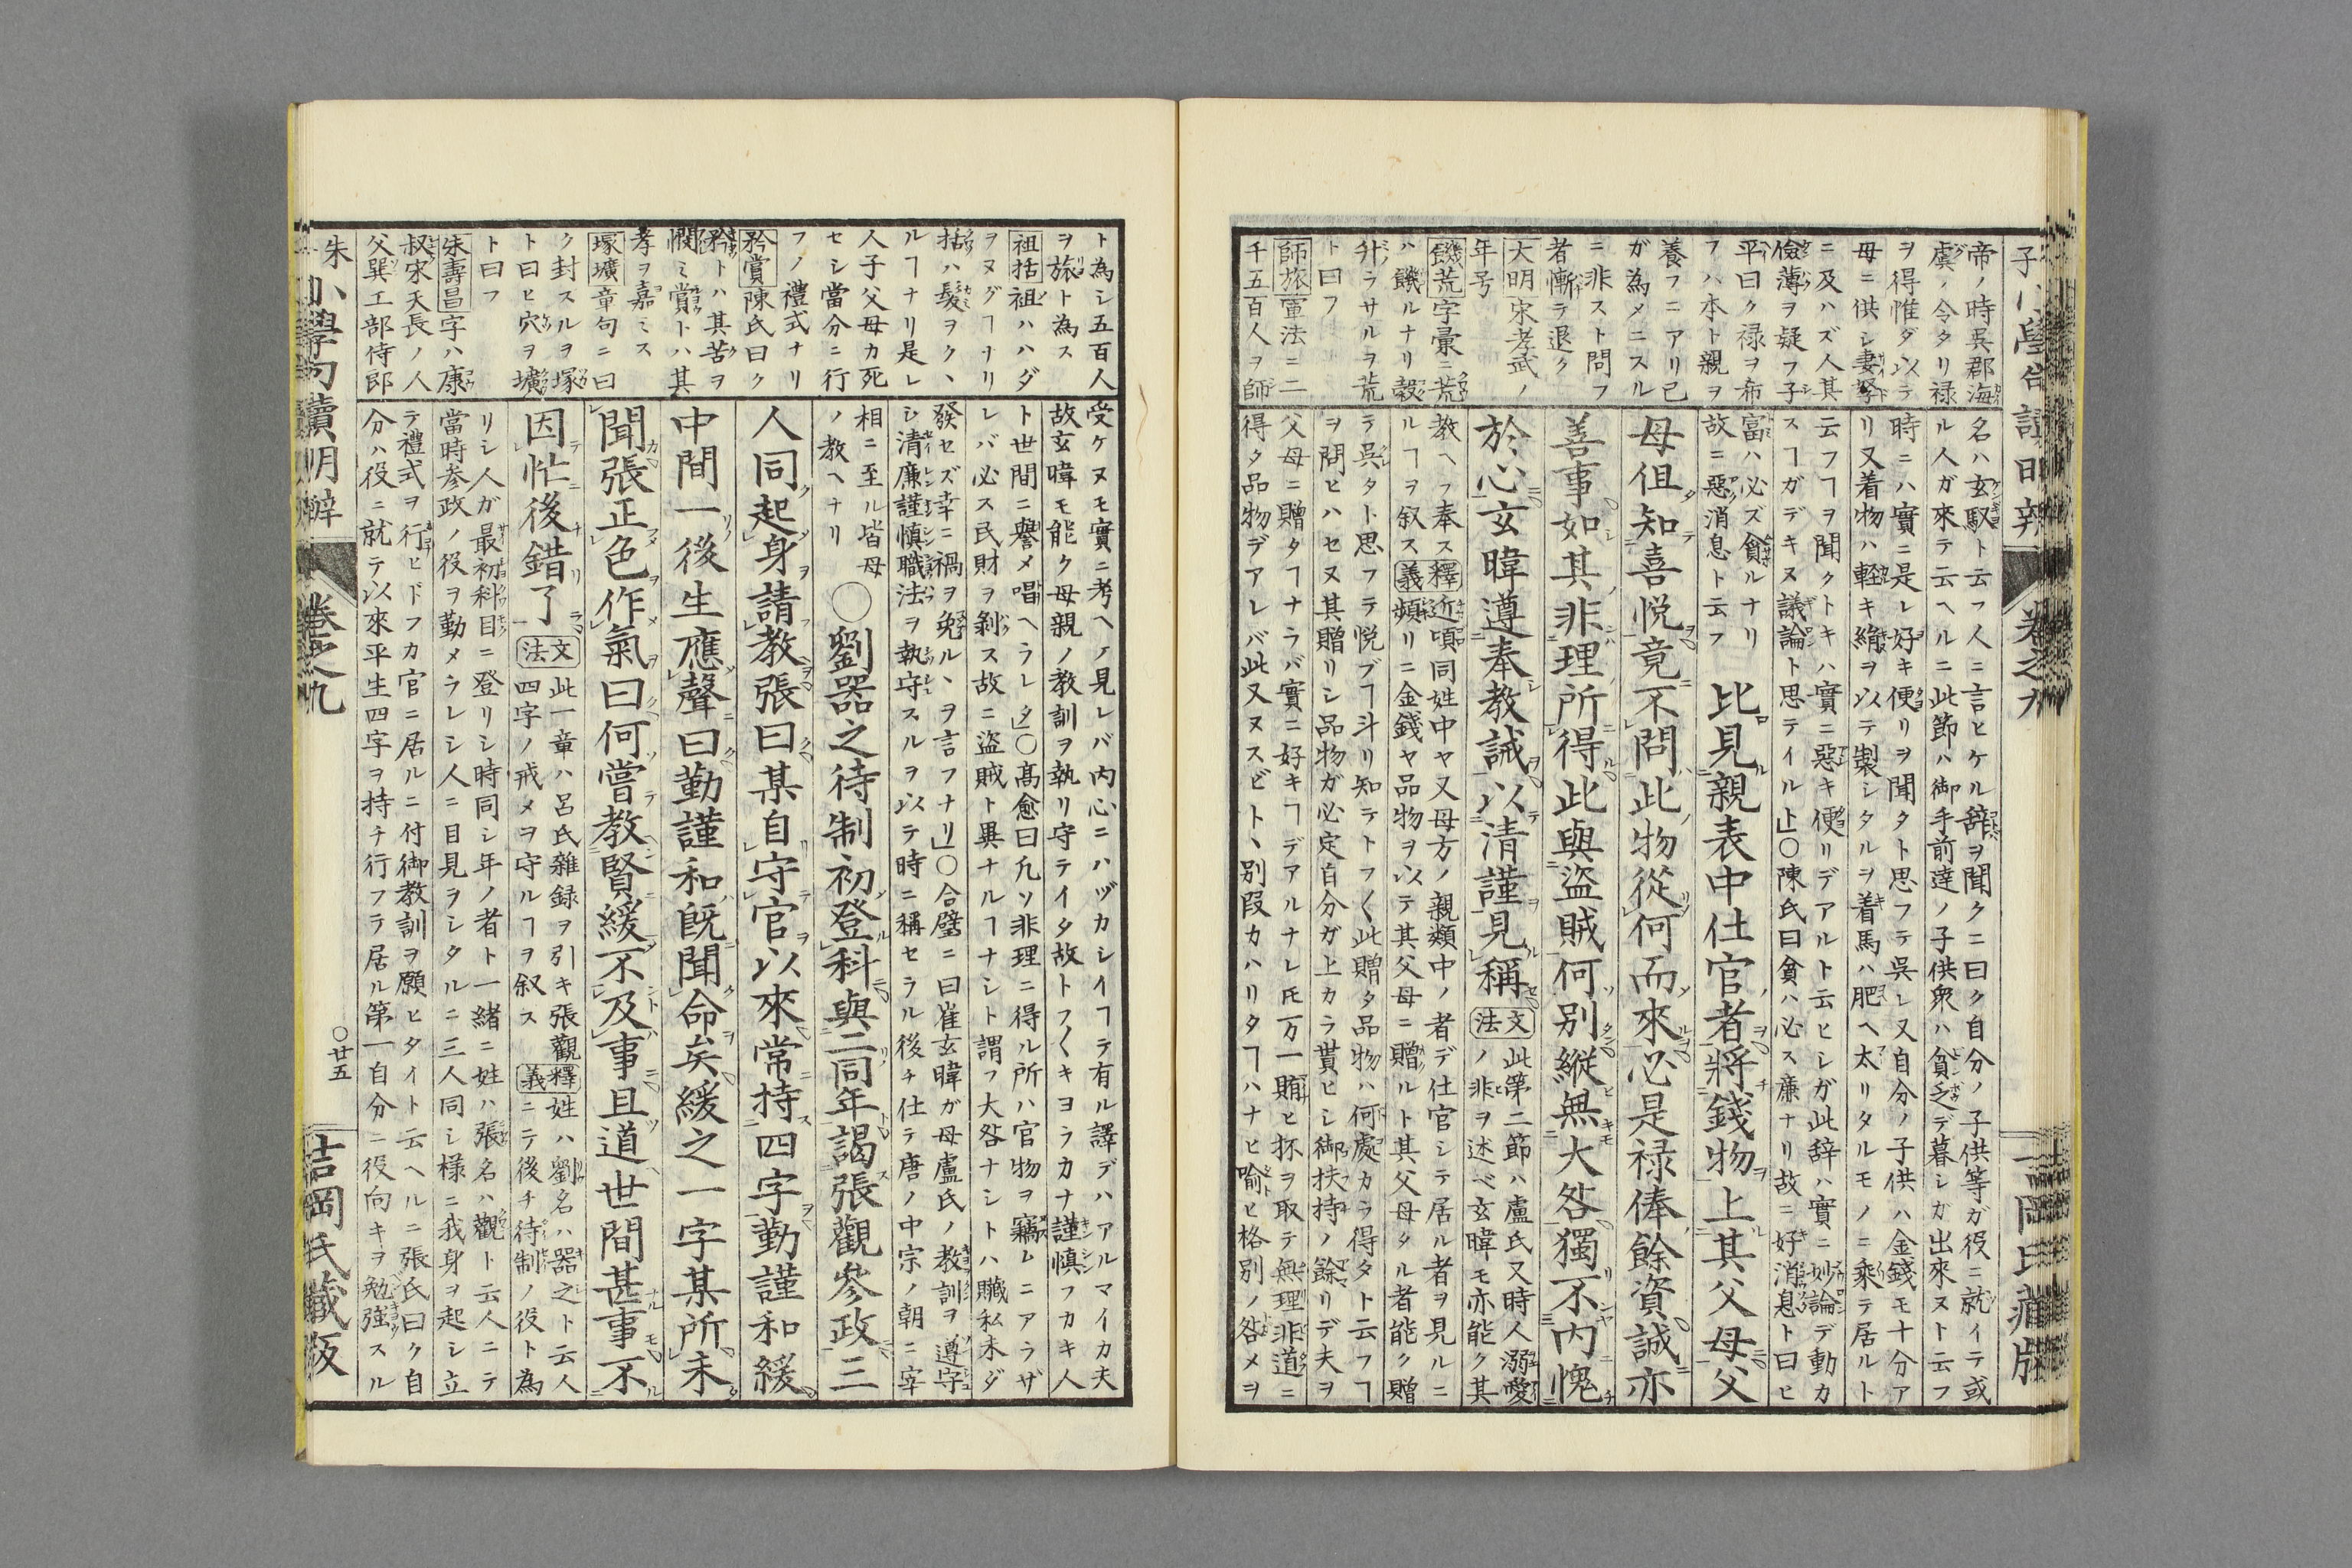 帝ノ時呉郡海
虞ノ令タリ禄
ヲ得惟ダ以テ
母ニ供シ妻孥
ニ及ハズ人其
儉薄ヲ疑フ子
平曰ク禄ヲ希
フハ本ト親ヲ
養フニアリ已
ガ為メニスル
ニ非スト問フ
者慚テ退ク
大明宋孝武ノ
年号
饑荒字彙ニ荒
ハ饑ルナリ穀
升ラサルヲ荒
ト曰フ
師旅軍法ニ二
千五百人ヲ師
名ハ玄馭ト云フ人ニ言ヒケル辞ヲ聞クニ曰ク自分ノ子供等ガ役ニ就イテ或
ル人ガ來テ云ヘルニ此節ハ御手前達ノ子供衆ハ貧乏デ暮シカ出來ヌト云フ
時ニハ實ニ是レ好キ便リヲ聞タト思フテ呉レ又自分ノ子供ハ金錢モ十分ア
リ又着物ハ軽キ絹ヲ以テ製シタルヲ着馬ハ肥ヘ太リタルモノニ乘テ居ルト
云フヿヲ聞クトキハ實ニ惡キ便リデアルト云ヒシガ此辞ハ實ニ妙論デ動カ
スヿガデキヌ議論ト思テイルト」○陳氏曰貧ハ必ス廉ナリ故ニ好消息ト曰ヒ
富ハ必ズ貪ルナリ
故ニ惡消息ト云フ
比見親表中仕官者將錢物上其父母父
母但知喜悦竟不問此物從何而來必是禄俸餘資誠亦
善事如其非理所得此與盜賊何別縱無大咎獨不内愧
於心玄暐遵奉教誡以清謹見稱
文法此第二節ハ盧氏又時人溺愛
ノ非ヲ述ベ玄暐モ亦能ク其
教ヘヲ奉ス釋義近頃同姓中ヤ又母方ノ親類中ノ者デ仕官シテ居ル者ヲ見ルニ
ルヿヲ叙ス頻リニ金錢ヤ品物ヲ以テ其父母ニ贈ルト其父母タル者能ク贈
テ呉タト思フテ悦ブヿ斗リ知テトフ〱此贈タ品物ハ何處カラ得タト云フヿ
ヲ問ヒハセヌ其贈リシ品物ガ必定自分ガ上カラ貰ヒシ御扶持ノ餘リデ夫ヲ
父母ニ贈タヿナラバ實ニ好キヿデアルナレ𪜈万一賄ヒ抔ヲ取テ無理非道ニ
得タ品物デアレバ此又ヌスビト、別段カハリタヿハナヒ喩ヒ格別ノ咎メヲ
ト為シ五百人
ヲ旅ト為ス
袒括袒ハハダ
ヲヌグヿナリ
括ハ髪ヲクヽ
ルヿナリ是レ
人子父母カ死
セシ當分ニ行
フノ禮式ナリ
矜賞陳氏曰ク
矜トハ其苦ヲ
憫ミ賞トハ其
孝ヲ嘉ミス
塚壙章句ニ曰
ク封スルヲ塚
ト曰ヒ穴ヲ壙
ト曰フ
朱壽昌字ハ康
叔宋天長ノ人
父巽工部侍郎
受ケヌモ實ニ考ヘテ見レバ内心ニハヅカシイヿテ有ル譯デハアルマイカ夫
故玄暐モ能ク母親ノ教訓ヲ執リ守テイタ故トフ〱キヨラカナ謹慎フカキ人
ト世間ニ譽メ唱ヘラレタ」○高愈曰凡ソ非理ニ得ル所ハ官物ヲ竊ムニアラザ
レバ必ス民財ヲ剝ス故ニ盜賊ト異ナルヿナシト謂フ大咎ナシトハ贓私未ダ
發セズ幸ニ禍ヲ免ルヽヲ言フナリ」○合璧ニ曰崔玄暐ガ母盧氏ノ教訓ヲ遵守
シ清廉謹慎職法ヲ執守スルヲ以テ時ニ稱セラル後チ仕テ唐ノ中宗ノ朝ニ宰
相ニ至ル皆母
ノ教ヘナリ
○劉器之待制初登科與二同年謁張觀參政三
人同起身請教張曰某自守官以來常持四字勤謹和緩
中間一後生應聲曰勤謹和既聞命矣緩之一字某所未
聞張正色作氣曰何嘗教賢緩不及事且道世間甚事不
因忙後錯了
文法此一章ハ呂氏雜録ヲ引キ張觀
四字ノ戒メヲ守ルヿヲ叙ス
釋義姓ハ劉名ハ器之ト云人
ニテ後チ待制ノ役ト為
リシ人ガ最初科目ニ登リシ時同シ年ノ者ト一緒ニ姓ハ張名ハ觀ト云人ニテ
當時参政ノ役ヲ勤メラレシ人ニ目見ヲシタルニ三人同シ様ニ我身ヲ起シ立
テ禮式ヲ行ヒドフカ官ニ居ルニ付御教訓ヲ願ヒタイト云ヘルニ張氏曰ク自
分ハ役ニ就テ以來平生四字ヲ持チ行フテ居ル第一自分ニ役向キヲ勉強スル
朱
小學句讀明辨 卷之九 ○廿五 吉岡氏藏版